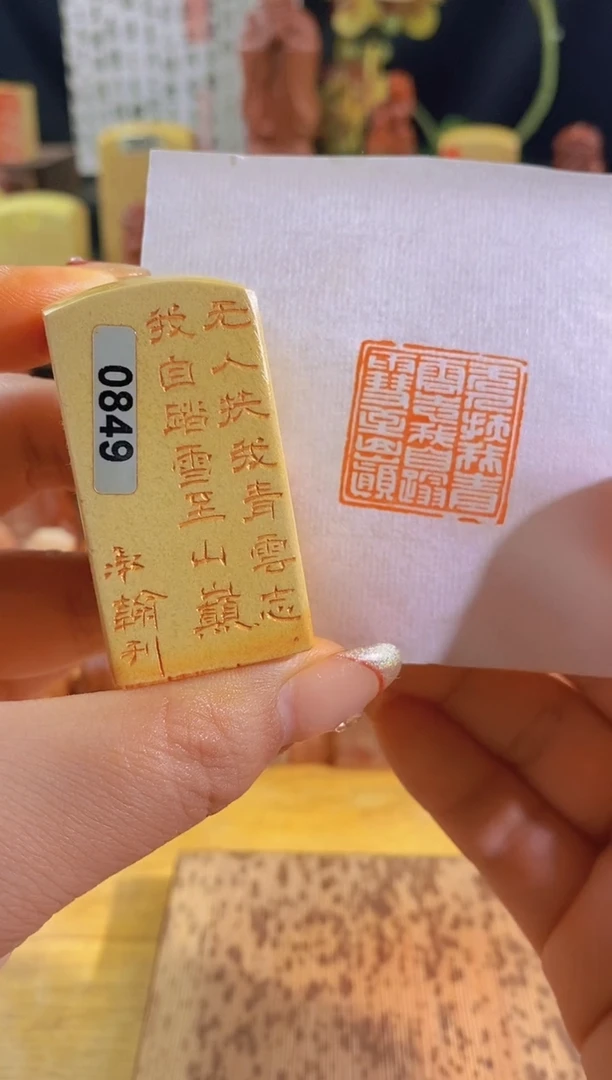 无人扶我青雲志
我自踏雪至山巔
承翰刊
0849
无人扶我青
雲志我自踏
雪至山顛